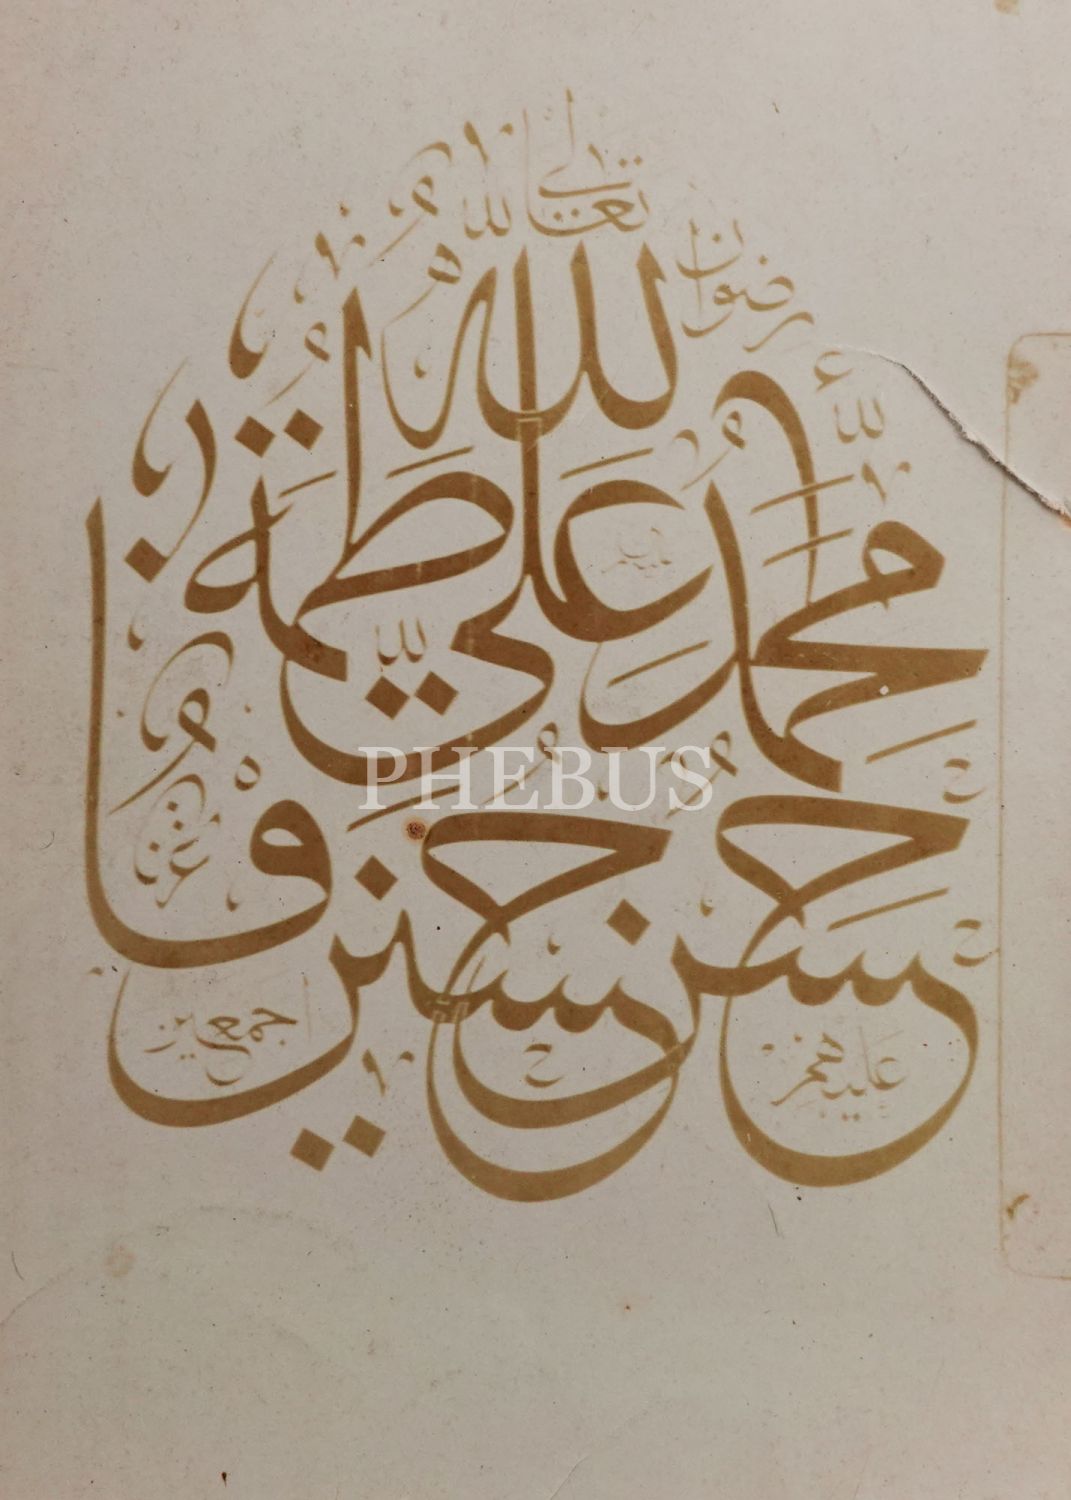 الله
محمد علي فاطمة
حسن حسين
رضوان الله تعالى عليهم اجمعين
PHEBUS